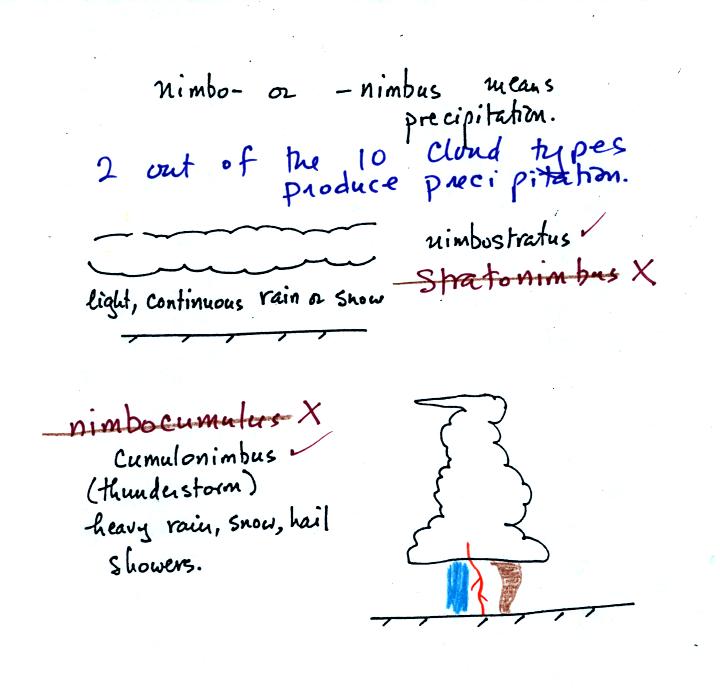 nimbo- or -nimbus means
precipitation.
2 out of the 10 cloud types
produce precipitation.
nimbostratus ✓
stratonimbus X
light, continuous rain or snow
nimbocumulus X
Cumulonimbus ✓
(thunderstorm)
heavy rain, snow, hail
showers.